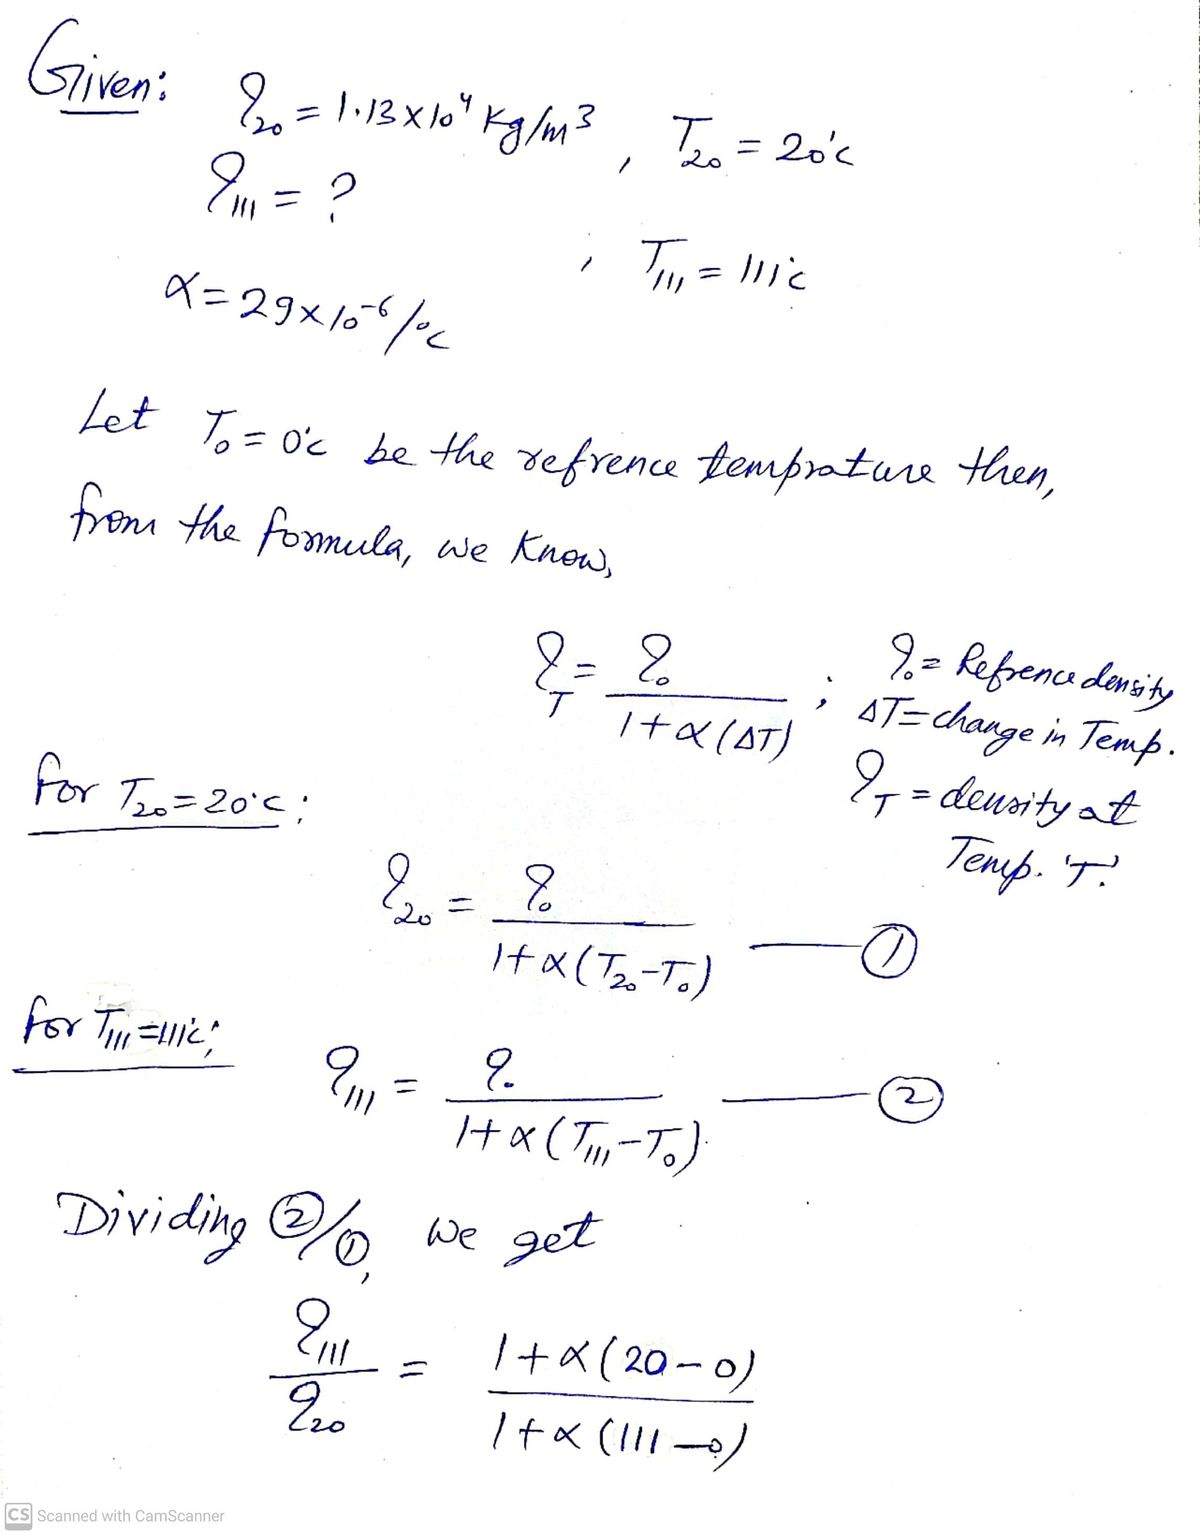 Given: ρ₂₀ = 1.13 × 10⁴ Kg/m³ , T₂₀ = 20°c
ρ₁₁₁ = ? , T₁₁₁ = 111°c
α = 29 × 10⁻⁶ /°c
Let T₀ = 0°c be the refrence temprature then,
from the formula, we know,
ρ_T = ρ₀ / (1 + α(ΔT)) ; ρ₀ = Refrence density
ΔT = change in Temp.
ρ_T = density at
Temp. 'T'.
for T₂₀ = 20°c :
ρ₂₀ = ρ₀ / (1 + α(T₂₀ - T₀)) —— ①
for T₁₁₁ = 111°c ;
ρ₁₁₁ = ρ₀ / (1 + α(T₁₁₁ - T₀)) —— ②
Dividing ②/①, we get
ρ₁₁₁ / ρ₂₀ = (1 + α(20 - 0)) / (1 + α(111 - 0))
CS Scanned with CamScanner